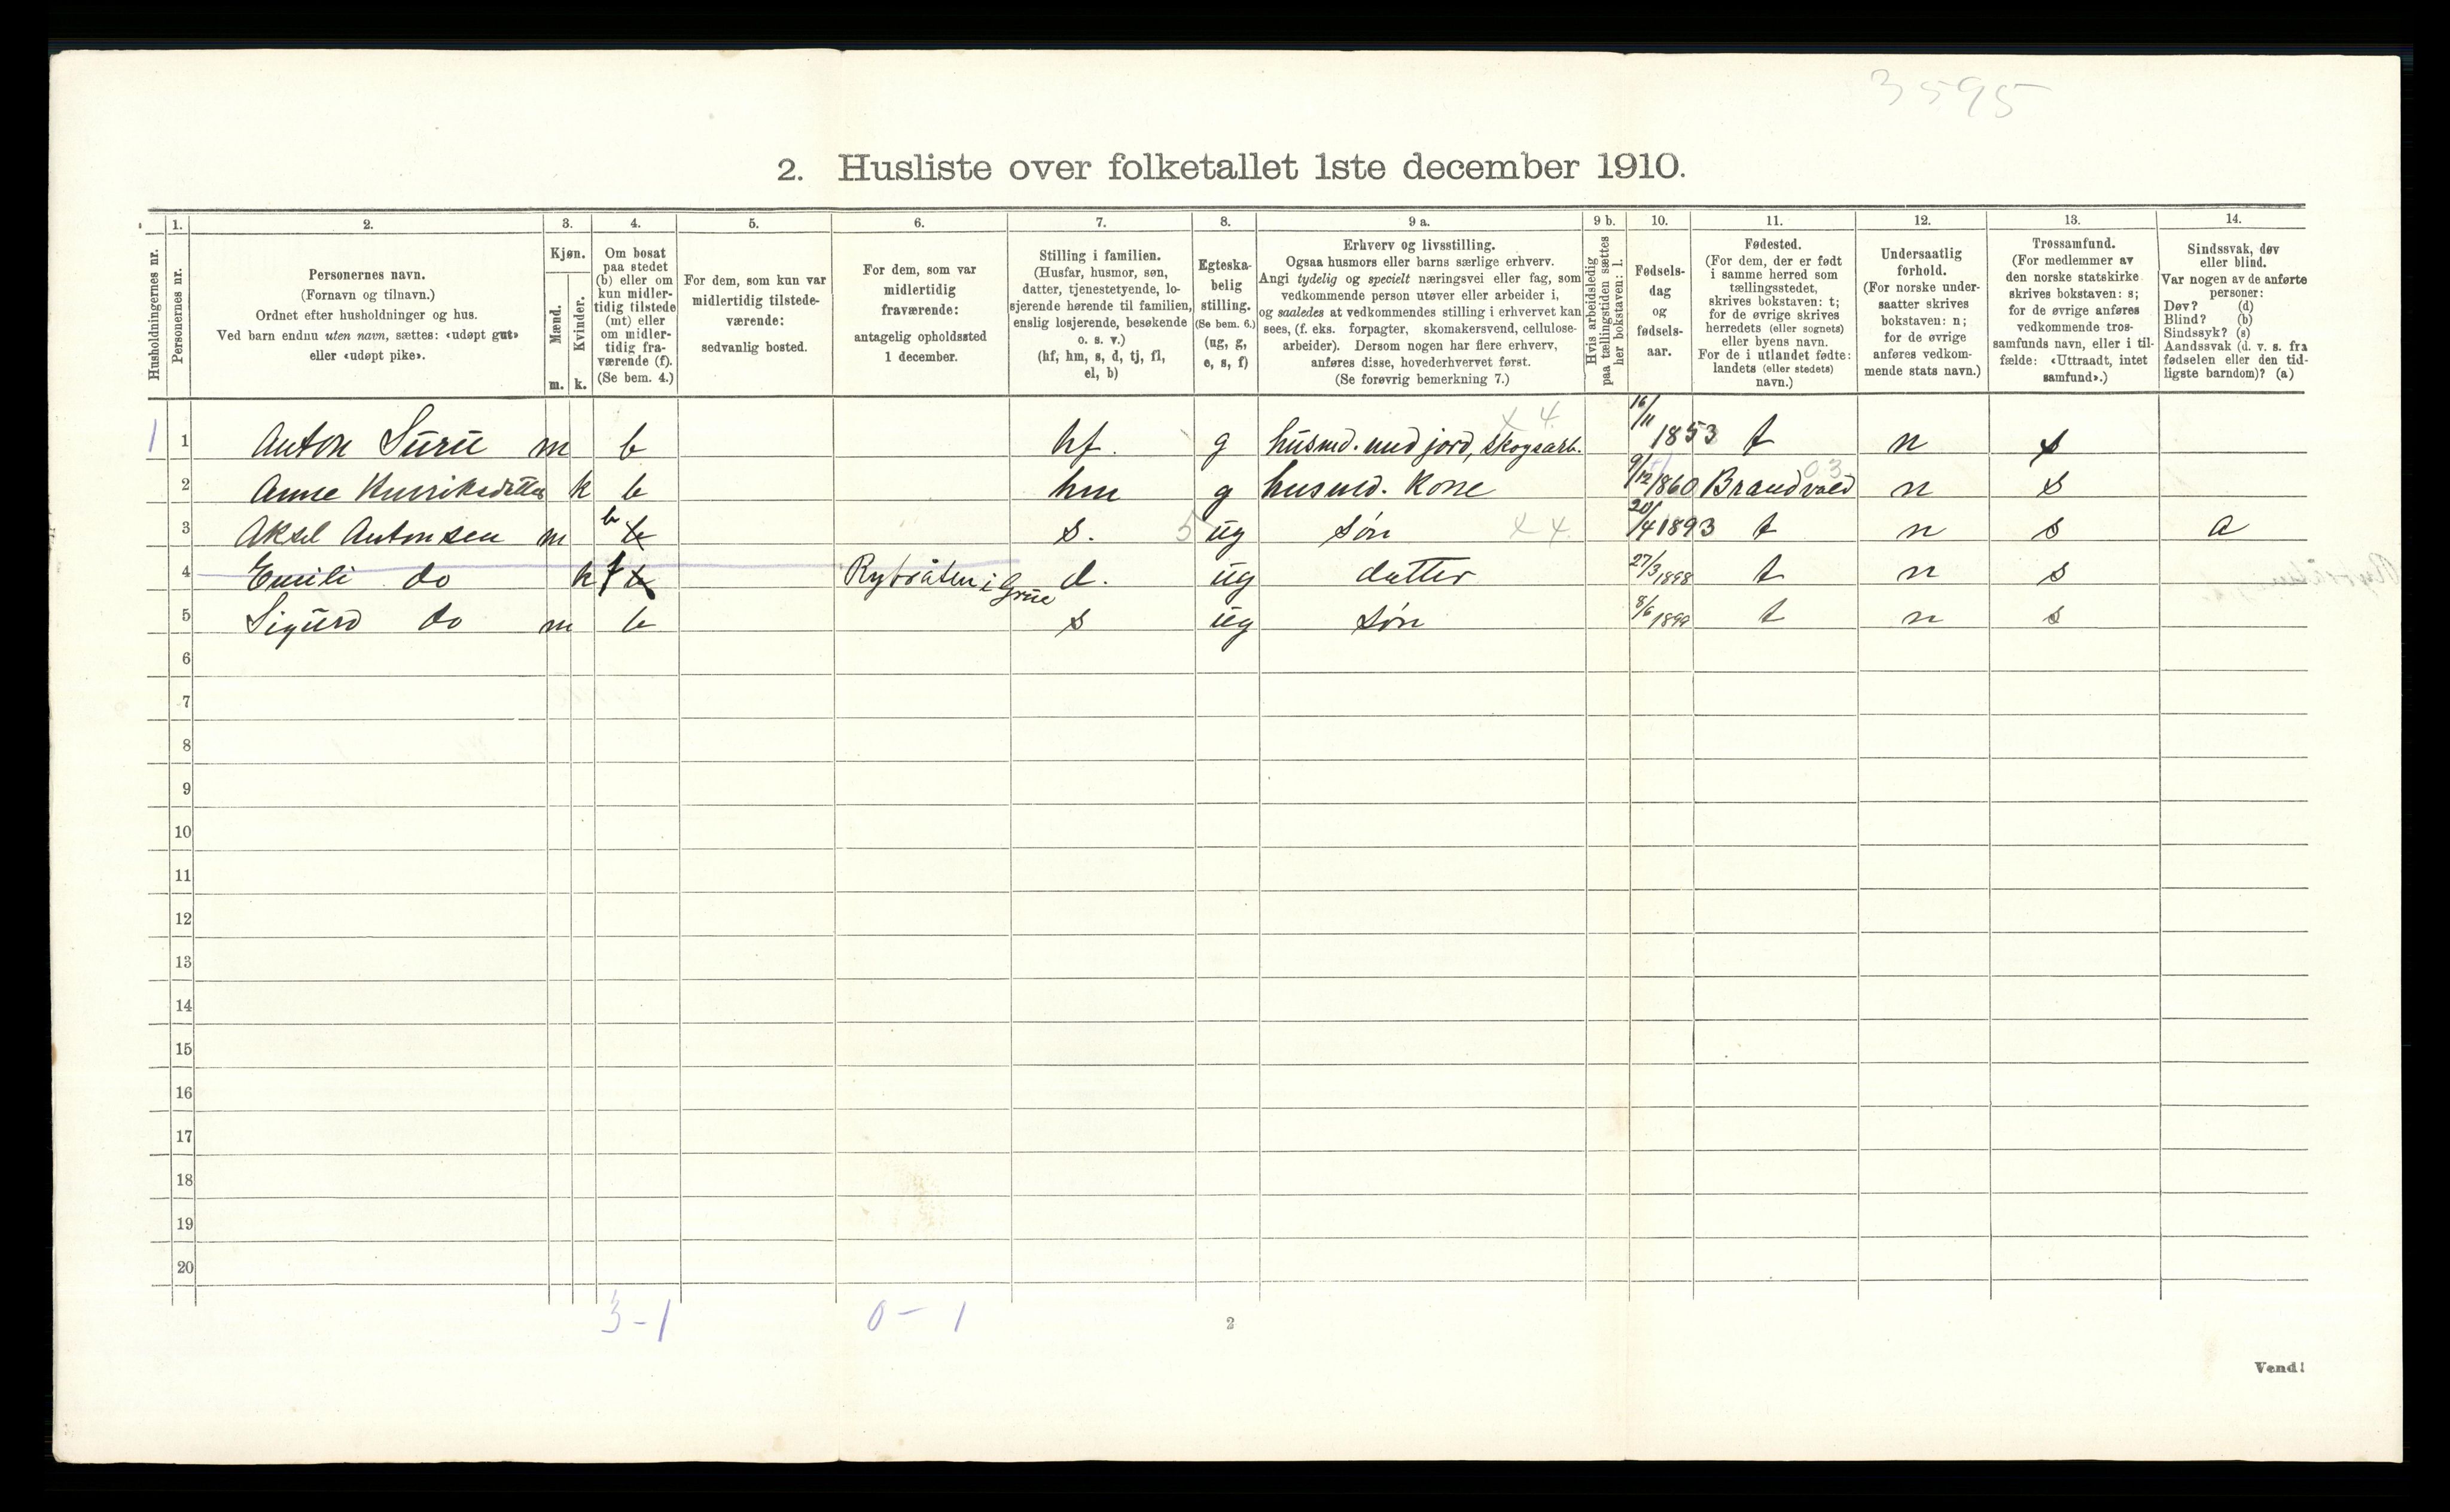 3595
2. Husliste over folketallet 1ste december 1910.
Husholdningernes nr.
1.
Personernes nr.
2.
Personernes navn.
(Fornavn og tilnavn.)
Ordnet efter husholdninger og hus.
Ved barn endnu uten navn, sættes: «udøpt gut»
eller «udøpt pike».
3.
Kjøn.
Mænd.
Kvinder.
m. k.
4.
Om bosat
paa stedet
(b) eller om
kun midler-
tidig tilstede
(mt) eller
om midler-
tidig fra-
værende (f).
(Se bem. 4.)
5.
For dem, som kun var
midlertidig tilstede-
værende:
sedvanlig bosted.
6.
For dem, som var
midlertidig
fraværende:
antagelig opholdssted
1 december.
7.
Stilling i familien.
(Husfar, husmor, søn,
datter, tjenestetyende, lo-
sjerende hørende til familien,
enslig losjerende, besøkende
o. s. v.)
(hf, hm, s, d, tj, fl,
el, b)
8.
Egteska-
belig
stilling.
(Se bem. 6.)
(ug, g,
e, s, f)
9 a.
Erhverv og livsstilling.
Ogsaa husmors eller barns særlige erhverv.
Angi tydelig og specielt næringsvei eller fag, som
vedkommende person utøver eller arbeider i,
og saaledes at vedkommendes stilling i erhvervet kan
sees, (f. eks. forpagter, skomakersvend, cellulose-
arbeider). Dersom nogen har flere erhverv,
anføres disse, hovederhvervet først.
(Se forøvrig bemerkning 7.)
9 b.
Hvis arbeidsledig
paa tællingstiden sættes
her bokstaven: l.
10.
Fødsels-
dag
og
fødsels-
aar.
11.
Fødested.
(For dem, der er født
i samme herred som
tællingsstedet,
skrives bokstaven: t;
for de øvrige skrives
herredets (eller sognets)
eller byens navn.
For de i utlandet fødte:
landets (eller stedets)
navn.)
12.
Undersaatlig
forhold.
(For norske under-
saatter skrives
bokstaven: n;
for de øvrige
anføres vedkom-
mende stats navn.)
13.
Trossamfund.
(For medlemmer av
den norske statskirke
skrives bokstaven: s;
for de øvrige anføres
vedkommende tros-
samfunds navn, eller i til-
fælde: «Uttraadt, intet
samfund».)
14.
Sindssvak, døv
eller blind.
Var nogen av de anførte
personer:
Døv? (d)
Blind? (b)
Sindssyk? (s)
Aandssvak (d. v. s. fra
fødselen eller den tid-
ligste barndom)? (a)
x 4.
1 1 Anton Suru m b hf. g husmd. med jord, skogsarb. 16/11 1853 t n s
03
2 Anne Henriksdatter k b hm g husmd. Kone 9/12 1860 Brandvold n s
3 Aksel Antonsen m b b s. 5 ug søn x 4. 20/4 1893 t n s a
4 Emili do k f b Rybråten i Grue d. ug datter 27/3 1898 t n s
5 Sigurd do m b s ug søn 8/6 1899 t n s
6
7
8
9
10
11
12
13
14
15
16
17
18
19
20
3-1 0-1
2
Vend!